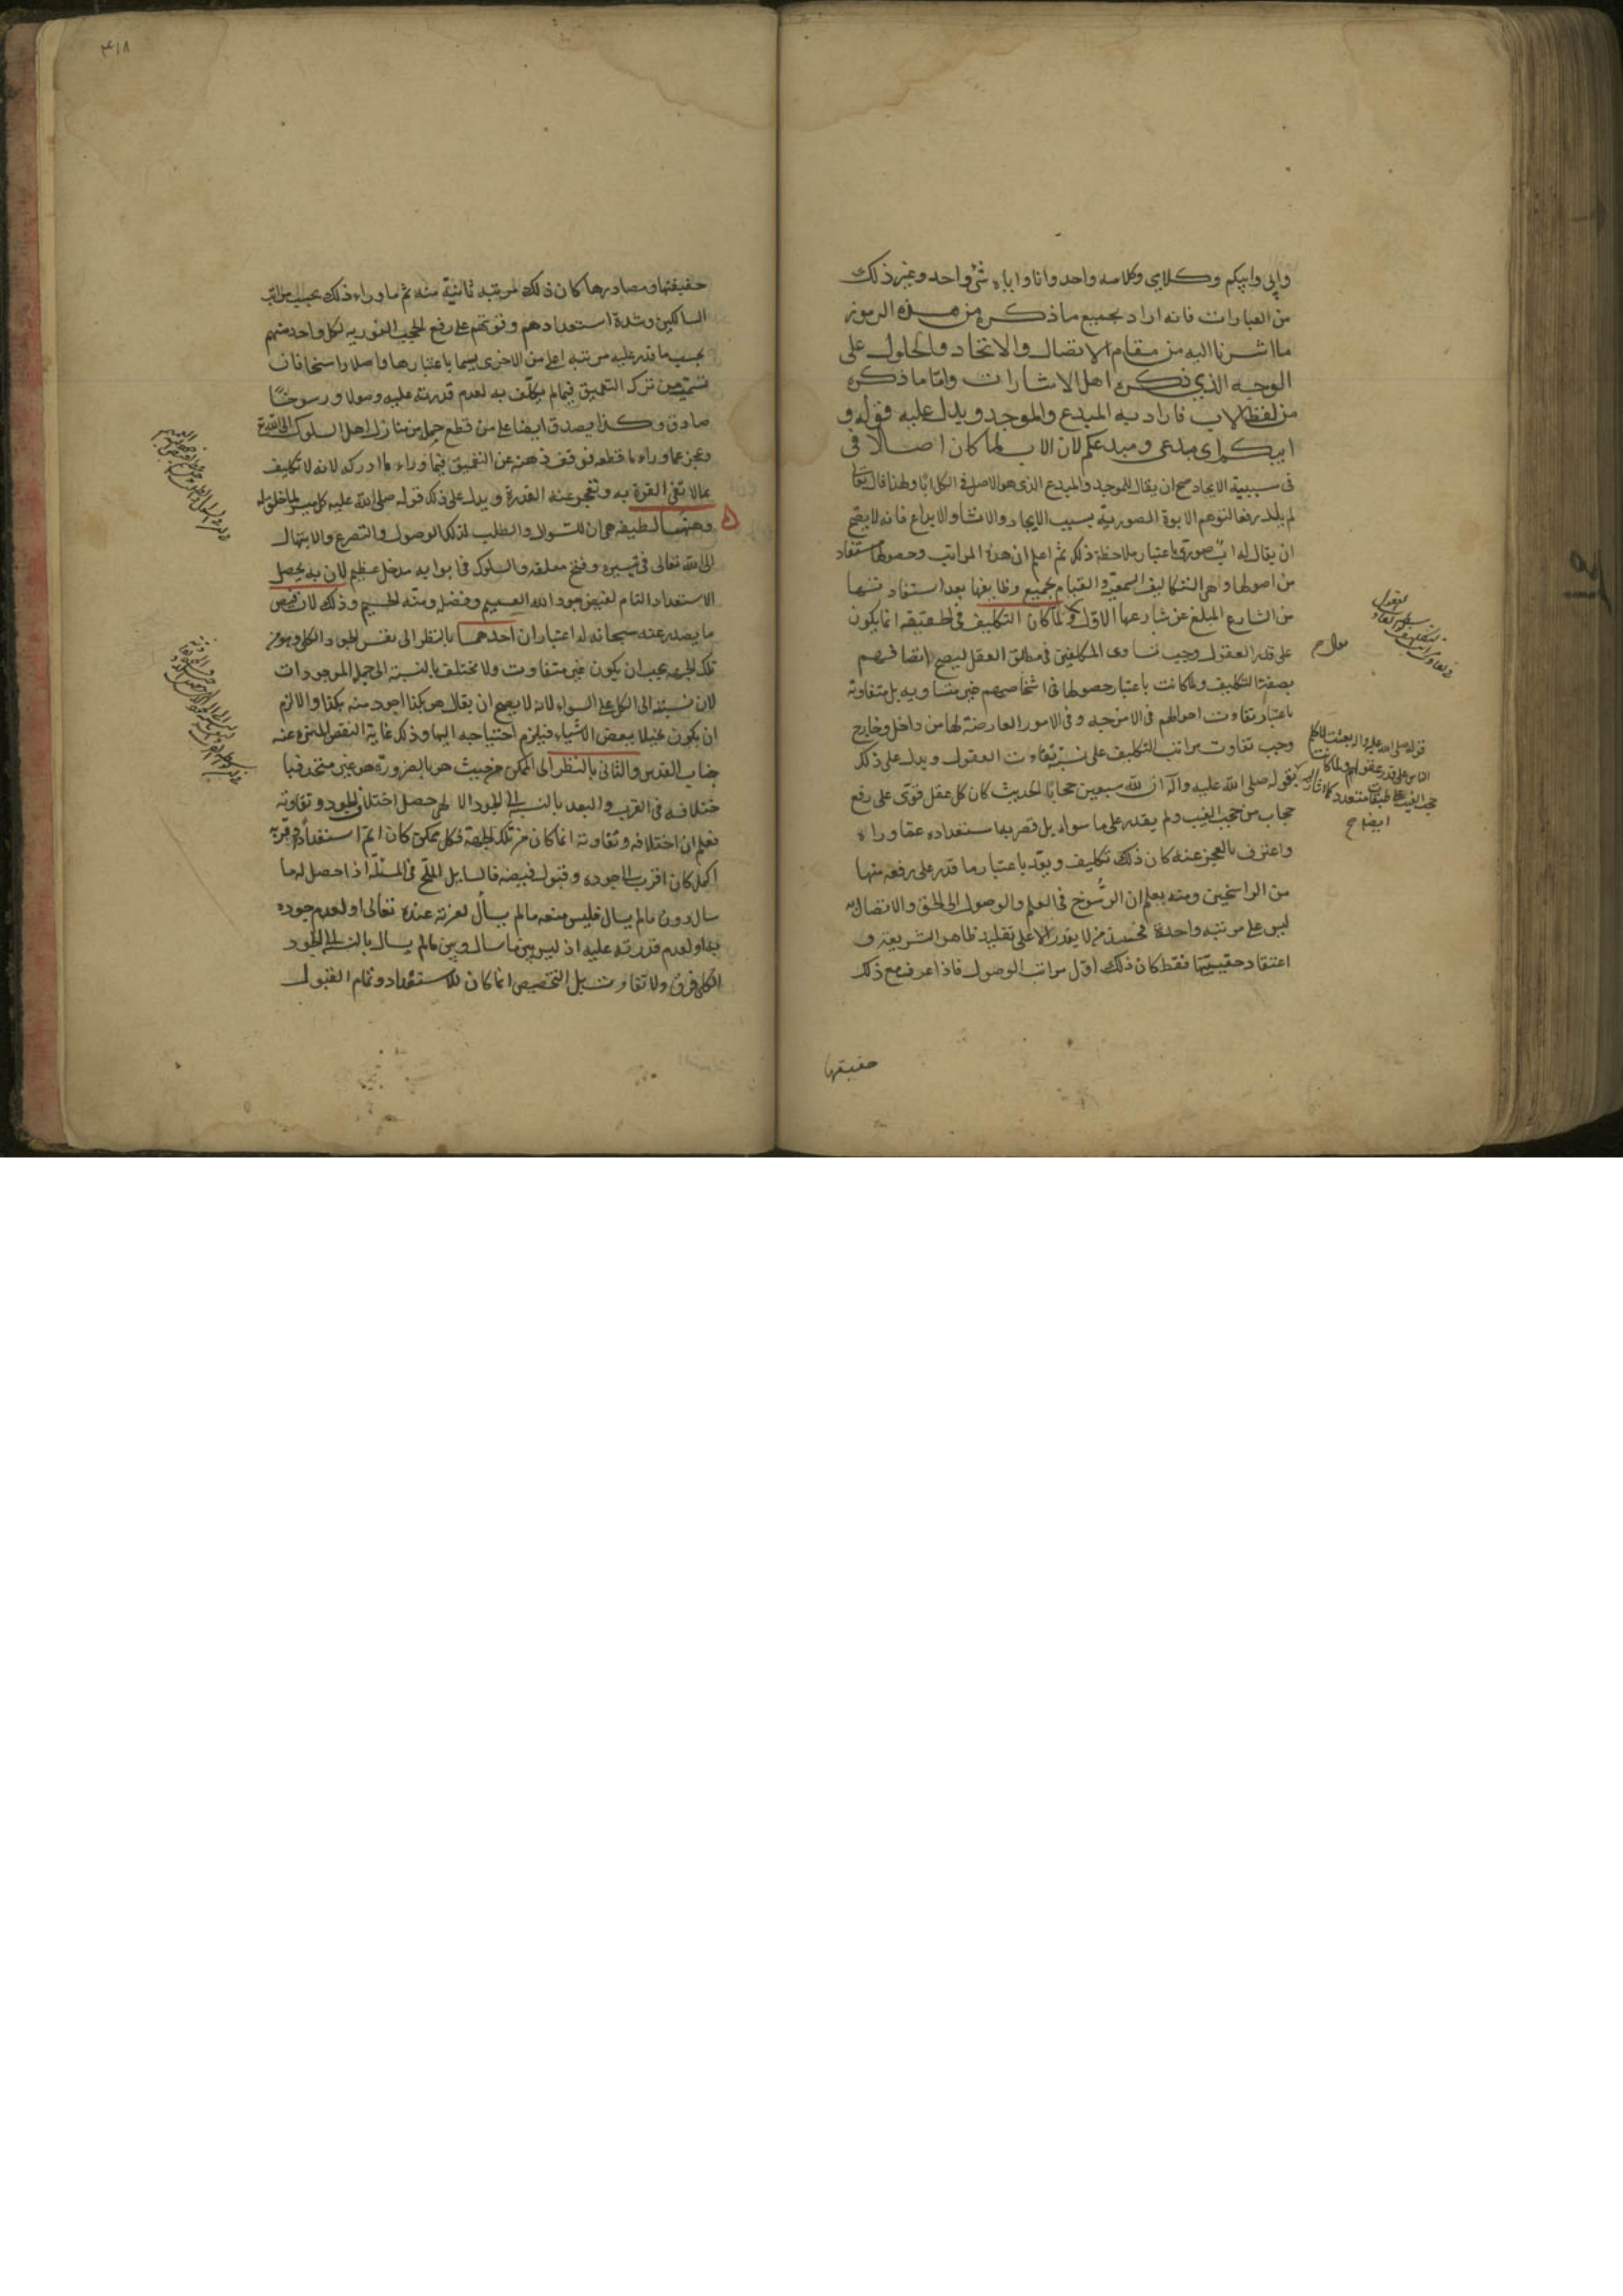 وابى وابيكم وكلامى وكلامه واحد وانا واياه شئ واحد وغير ذلك
من العبارات فانه اراد بجميع ما ذكره من هذه الرموز
ما اشرنا اليه من مقام الاتصال والاتحاد والحلول على
الوجه الذي ذكره اهل الاشارات واما ما ذكره
من لفظ الاب فاراد به المبدع والموجد ويدل عليه قوله و
ابيكم اى مبدعى ومبدعكم لان الاب لما كان اصلا فى
فى سببية الايجاد صح ان يقال للموجد والمبدع الذى هو الاصل فى الكل ابا ولهذا قال تعالى
لم يلد رفعا لتوهم الابوة الصورية بسبب الايجاد والانشا والابداع فانه لا يصح
ان يقال له اب صورى باعتبار ملاحظة ذلك ثم اعلم ان هذه المراتب وحصولها مستفاد
من اصولها واهى التكاليف السمعية والقيام بجميع وظايفها بعد استفاد تنها
من الشارع المبلغ عن شارعها الاول ولما كان التكليف فى الحقيقه انما يكون
على قدر العقول وجب تساوى المكلفين فى مطلق العقل ليصح اتصافهم
بصفة التكليف ولما كانت باعتبار حصولها فى اشخاصهم غير متساويه بل متفاوته
باعتبار تفاوت احوالهم فى الامزجه وفى الامور العارضة لها من داخل وخارج
وجب تفاوت مراتب التكليف على نسبة تفاوت العقول ويدل على ذلك
بقوله صلى الله عليه وآله ان لله سبعين حجابا الحديث كان كل عقل قوى على رفع
حجاب من حجب الغيب ولم يقدر على ما سواه بل قصر به استعداده عما وراه
واعترف بالعجز عنه كان ذلك تكليف ويعد باعتبار ما قدر على رفعه منها
من الراسخين ومنه يعلم ان الرسوخ فى العلم والوصول الى الحق والاتصال به
ليس على مرتبه واحدة فحسب من لا يقدر الا على تقليد ظاهر الشريعة و
اعتقاد حقيتها فقط كان ذلك اول مراتب الوصول فاذا عرف مع ذلك
حقيقتها
قوله صلى الله عليه واله بعثت لاكلم
الناس على قدر عقولهم ولما كانت
حجب الغيب على طبقات متعدد كما اشار اليه
ايضا ح
٤١٨
حقيقتها ومصادرها كان ذلك المرتبه ثانية منه ثم ما وراء ذلك بحسب مراتب
السالكين وشدة استعدادهم وقوتهم على رفع الحجب النوريه لكل واحد منهم
بحسب ما قدر عليه مرتبه اعلى من الاخرى يسما باعتبارها واصلا راسخا فان
تسمية من ترك التعميق فيما لم يكلف به لعدم قدرته عليه وصولا ورسوخا
صادق وكذا يصدق ايضا على من قطع جملة من منازل اهل السلوك الى الله
وعجز عما وراء ما قطعه فوقف ذهنه عن التعميق فيما وراء ما ادركه لانه لا تكليف
بما لا تفى القوة به وتعجز عنه القدرة ويدل على ذلك قوله صلى الله عليه كل ميسر لما خلق له
وههنا لطيفه هى ان للسؤال والطلب لذلك الوصول والتضرع والابتهال
الى الله تعالى فى تيسيره وفتح مغلقه والسلوك فى ابوابه مدخل عظيم لان به يحصل
الاستعداد التام لفيض جود الله العميم وفضله ومنه الجسيم وذلك لان فيض
ما يصدر عنه سبحانه له اعتباران احدهما بالنظر الى نفس الجود الكلى وهو من
تلك الجهه يجب ان يكون غير متفاوت ولا مختلف بالنسبة الى جملة الموجودات
لان نسبته الى الكل على السواء لانه لا يصح ان يقال هو بكذا اجود منه بكذا والا لزم
ان يكون بخيلا ببعض الاشياء فيلزم احتياجه اليها وذلك غاية النقص المنزه عنه
جناب القدس والثانى بالنظر الى الممكن من حيث هو بالضرورة هو غير متحد فبا
ختلافه فى القرب والبعد بالنسبة الى الجود الالهى حصل اختلاف الجود وتفاوته
فعلم ان اختلافه وتفاوته انما كان من تلك الجهة فكل ممكن كان اتم استعدادا وقربه
اكمل كان اقرب الى جوده وقبول فيضه فالسايل الملح فى المسئلة اذا حصل له ما
سال دون ما لم يسال فليس منعه ما لم يسأل لعزته عنده تعالى او لعدم جوده
به او لعدم قدرته عليه اذ ليس بين ما سال وبين ما لم يسال بالنسبة الى الجود
الكلى فرق ولا تفاوت بل التخصيص انما كان للاستعداد وتمام القبول